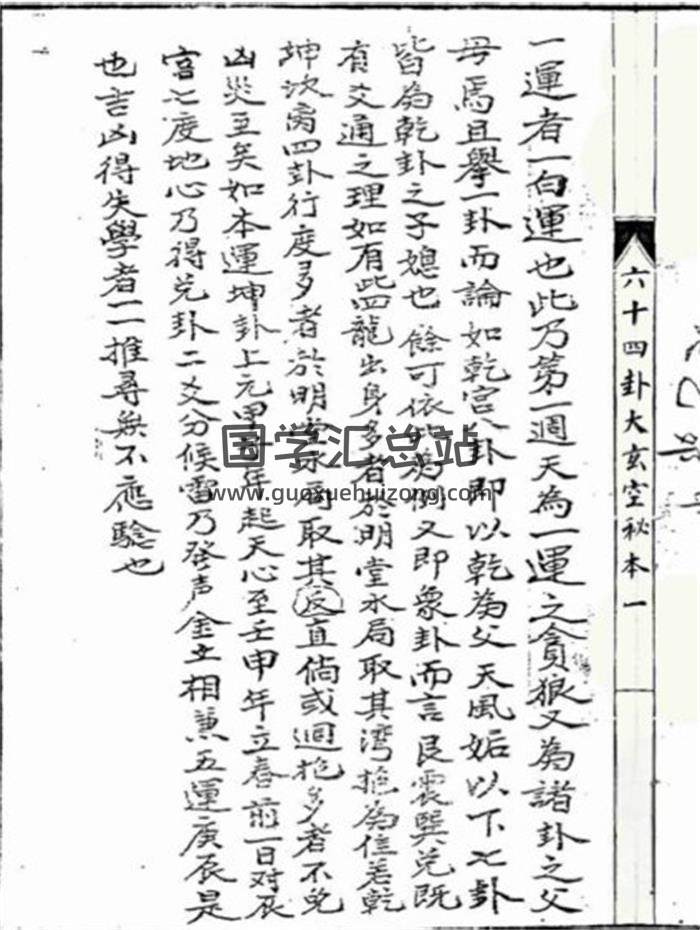 一運者一白運也此乃第一週天為一運之貪狼又為諸卦之父
母焉且舉一卦而論如乾宮八卦即以乾為父天風姤以下七卦
皆為乾卦之子媳也餘可依此為例又即象卦而言艮震巽兌既
有爻通之理如有此四龍出身多者於明堂水局取其灣抱為佳若乾
坤坎离四卦行度多者於明堂水局取其反直倘或迴抱多者不免
凶災至矣如本運坤卦上元甲子年起天心至壬申年立春前一日对辰
宮七度地心乃得兌卦二爻分候雷乃發声金土相兼五運庚辰是
也吉凶得失學者一一推尋無不應驗也
六十四卦大玄空秘本一
国学汇总站
www.guoxuehuizong.com